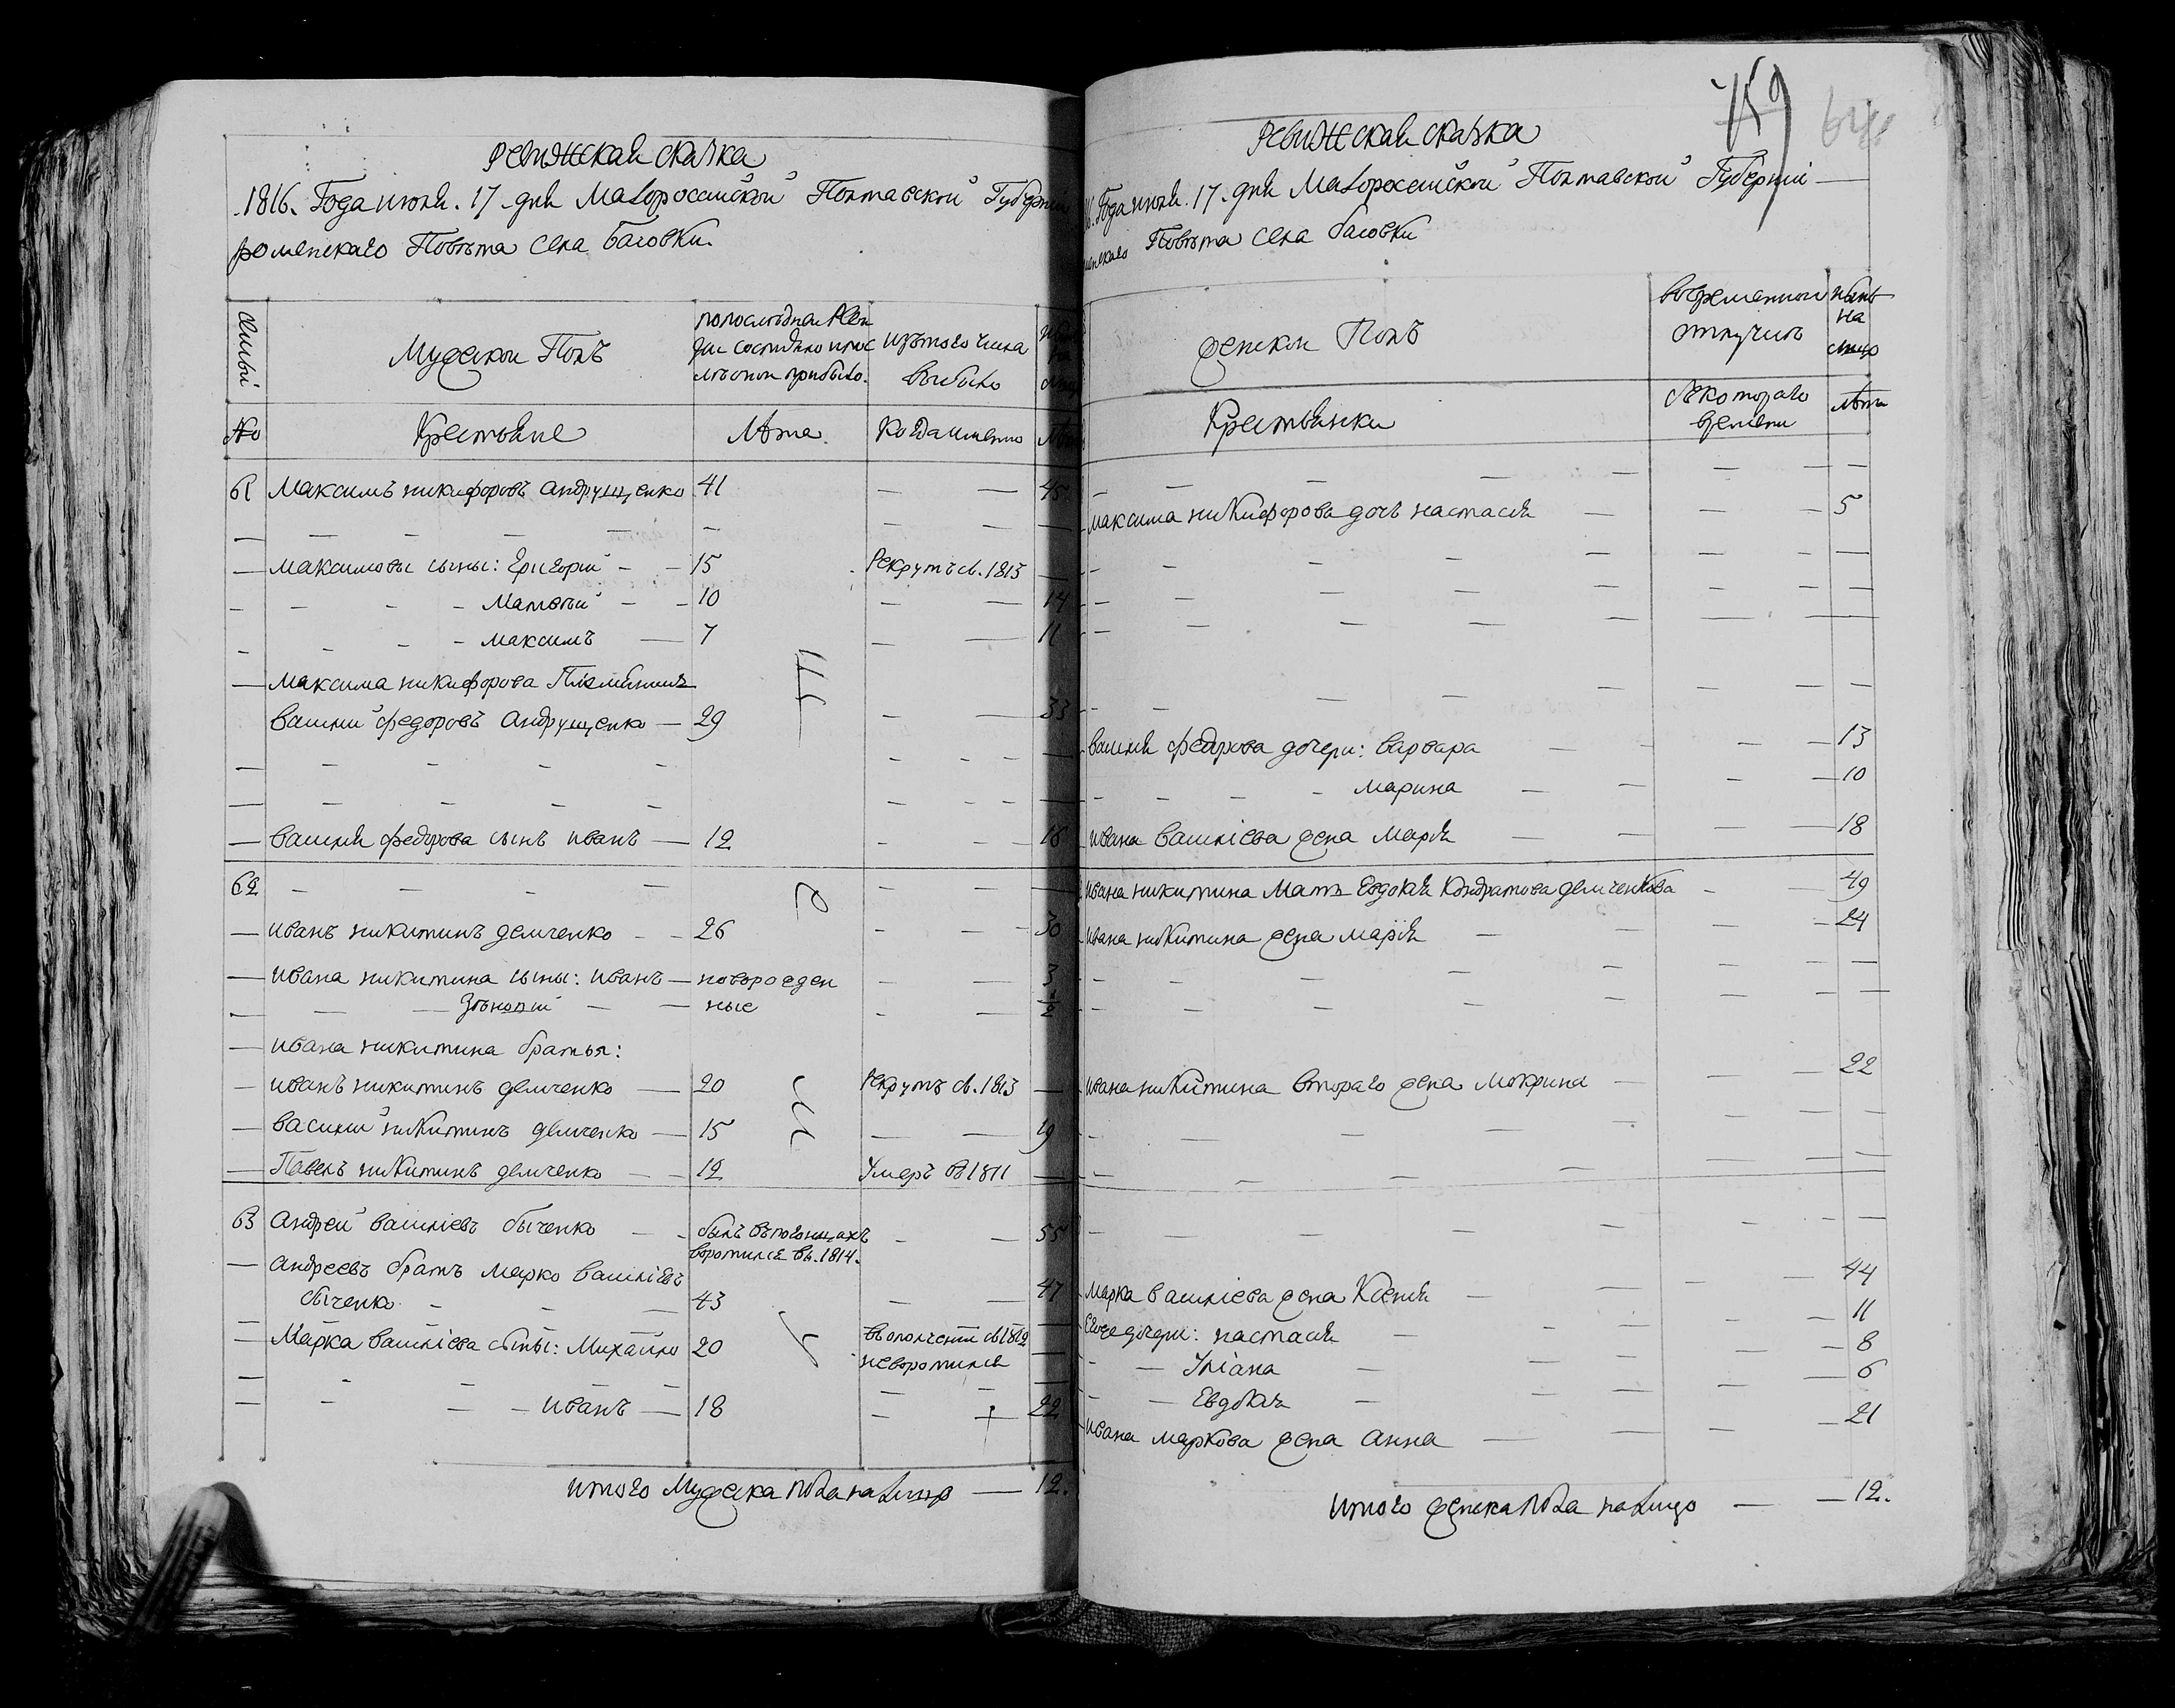 Ревижская сказка
1816. Года июня. 17. дня Малороссийской Полтавской Губернии
роменскаго Повѣта села Басовки.
семьи
Мужескои Полъ
Изътого числа
выбыло
№
Крестьяне
Лѣта.
Когдаименно
61 Максимъ никифоровъ андрущенко 41 — — 45
— Максимовы сыны: Григорий — 15 Рекрутъ въ. 1813 —
Матвѣй — 10 — — 14
максимъ — 7 — — 11
— максима никифорова Племянникъ
василий федоровъ андрущенко — 29 — — 33
— василия федорова сынъ иванъ — 12 — — 16
62 — — — —
— иванъ никитинъ демченко — 26 — — 30
— ивана никитина сыны: иванъ — новорожден — — 3
Зѣновий — ные
— ивана никитина братья:
— иванъ никитинъ демченко — 20 Рекрутъ въ. 1813 —
— василий никитинъ демченко — 15 — — 19
— Павелъ никитинъ демченко — 12 Умеръ въ 1811 —
63 Андрей василиевъ быченко — 55
воротился въ. 1814.
— андреевъ братъ марко василиевъ
быченко — 43 — — 47
— Марка василиева сыны: Михайло 20 въополчении въ1812
неворотился
иванъ — 18 — — 22
итого Мужеска пола налицо — 12.
759
Ревижская сказка
Года июня. 17. дня Малоросейской Полтавской Губернии
Повѣта села басовки
женскои Полъ
вовременной
отлучкѣ
нынѣ
на
лицо
Крестьянки
Съкотораго
времени
лѣта
максима никифорова дочь настасия — — 5
василия федорова дочери: варвара — — 13
марина — — 10
ивана василиева жена мария — — 18
ивана никитина мать Евдокия Кондратова демченкова — 49
ивана никитина жена мария — — 24
ивана никитина втораго жена мокрина — — 22
марка василиева жена Ксения — — 44
егоже дочери: настасия — 11
Улиана — 8
Евдокия — 6
ивана маркова жена анна — — 21
итого женска пола налицо — 12.